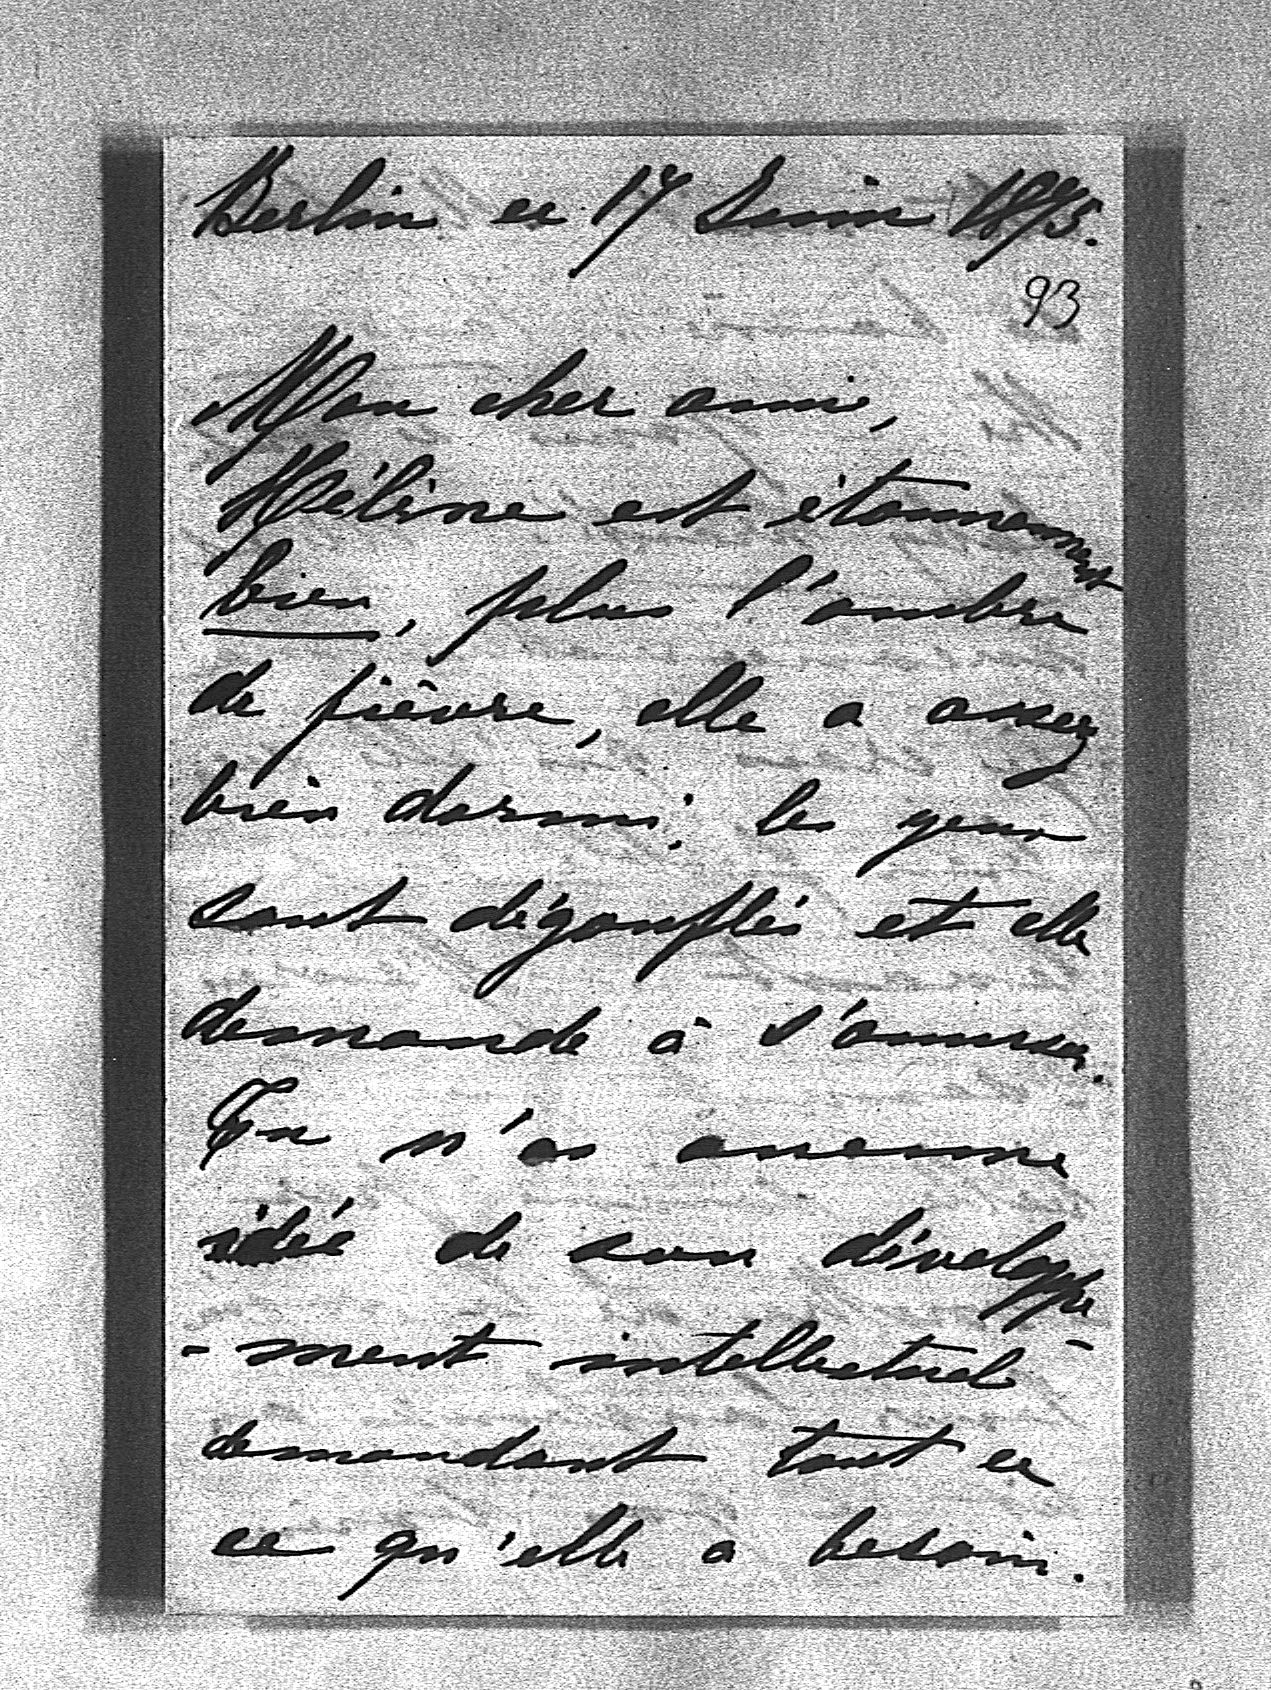 Berlin ce 17 Juin 1895.
93
Mon cher ami,
Hélène est étonnement
bien, plus l'ombre
de fièvre, elle a assez
bien dormi; les yeux
sont dégonflés et elle
demande à s'amuser.
Tu n'as aucune
idée de son développe
- ment intellectuel
demandant tout ce
ce qu'elle a besoin.